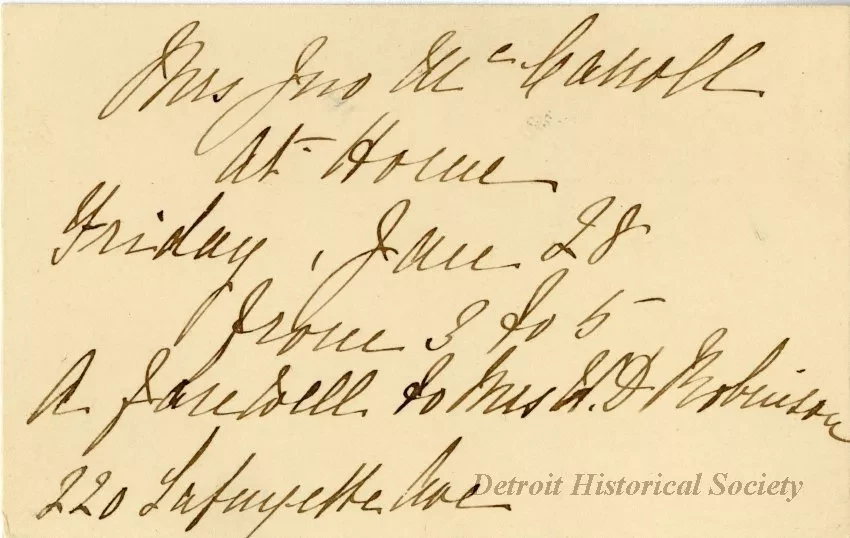 Mrs Jno Mc Carroll
at Home
Friday, Jan 28
from 3 to 5
A farewell to Mrs W. D Robinson
220 Lafayette Ave
Detroit Historical Society